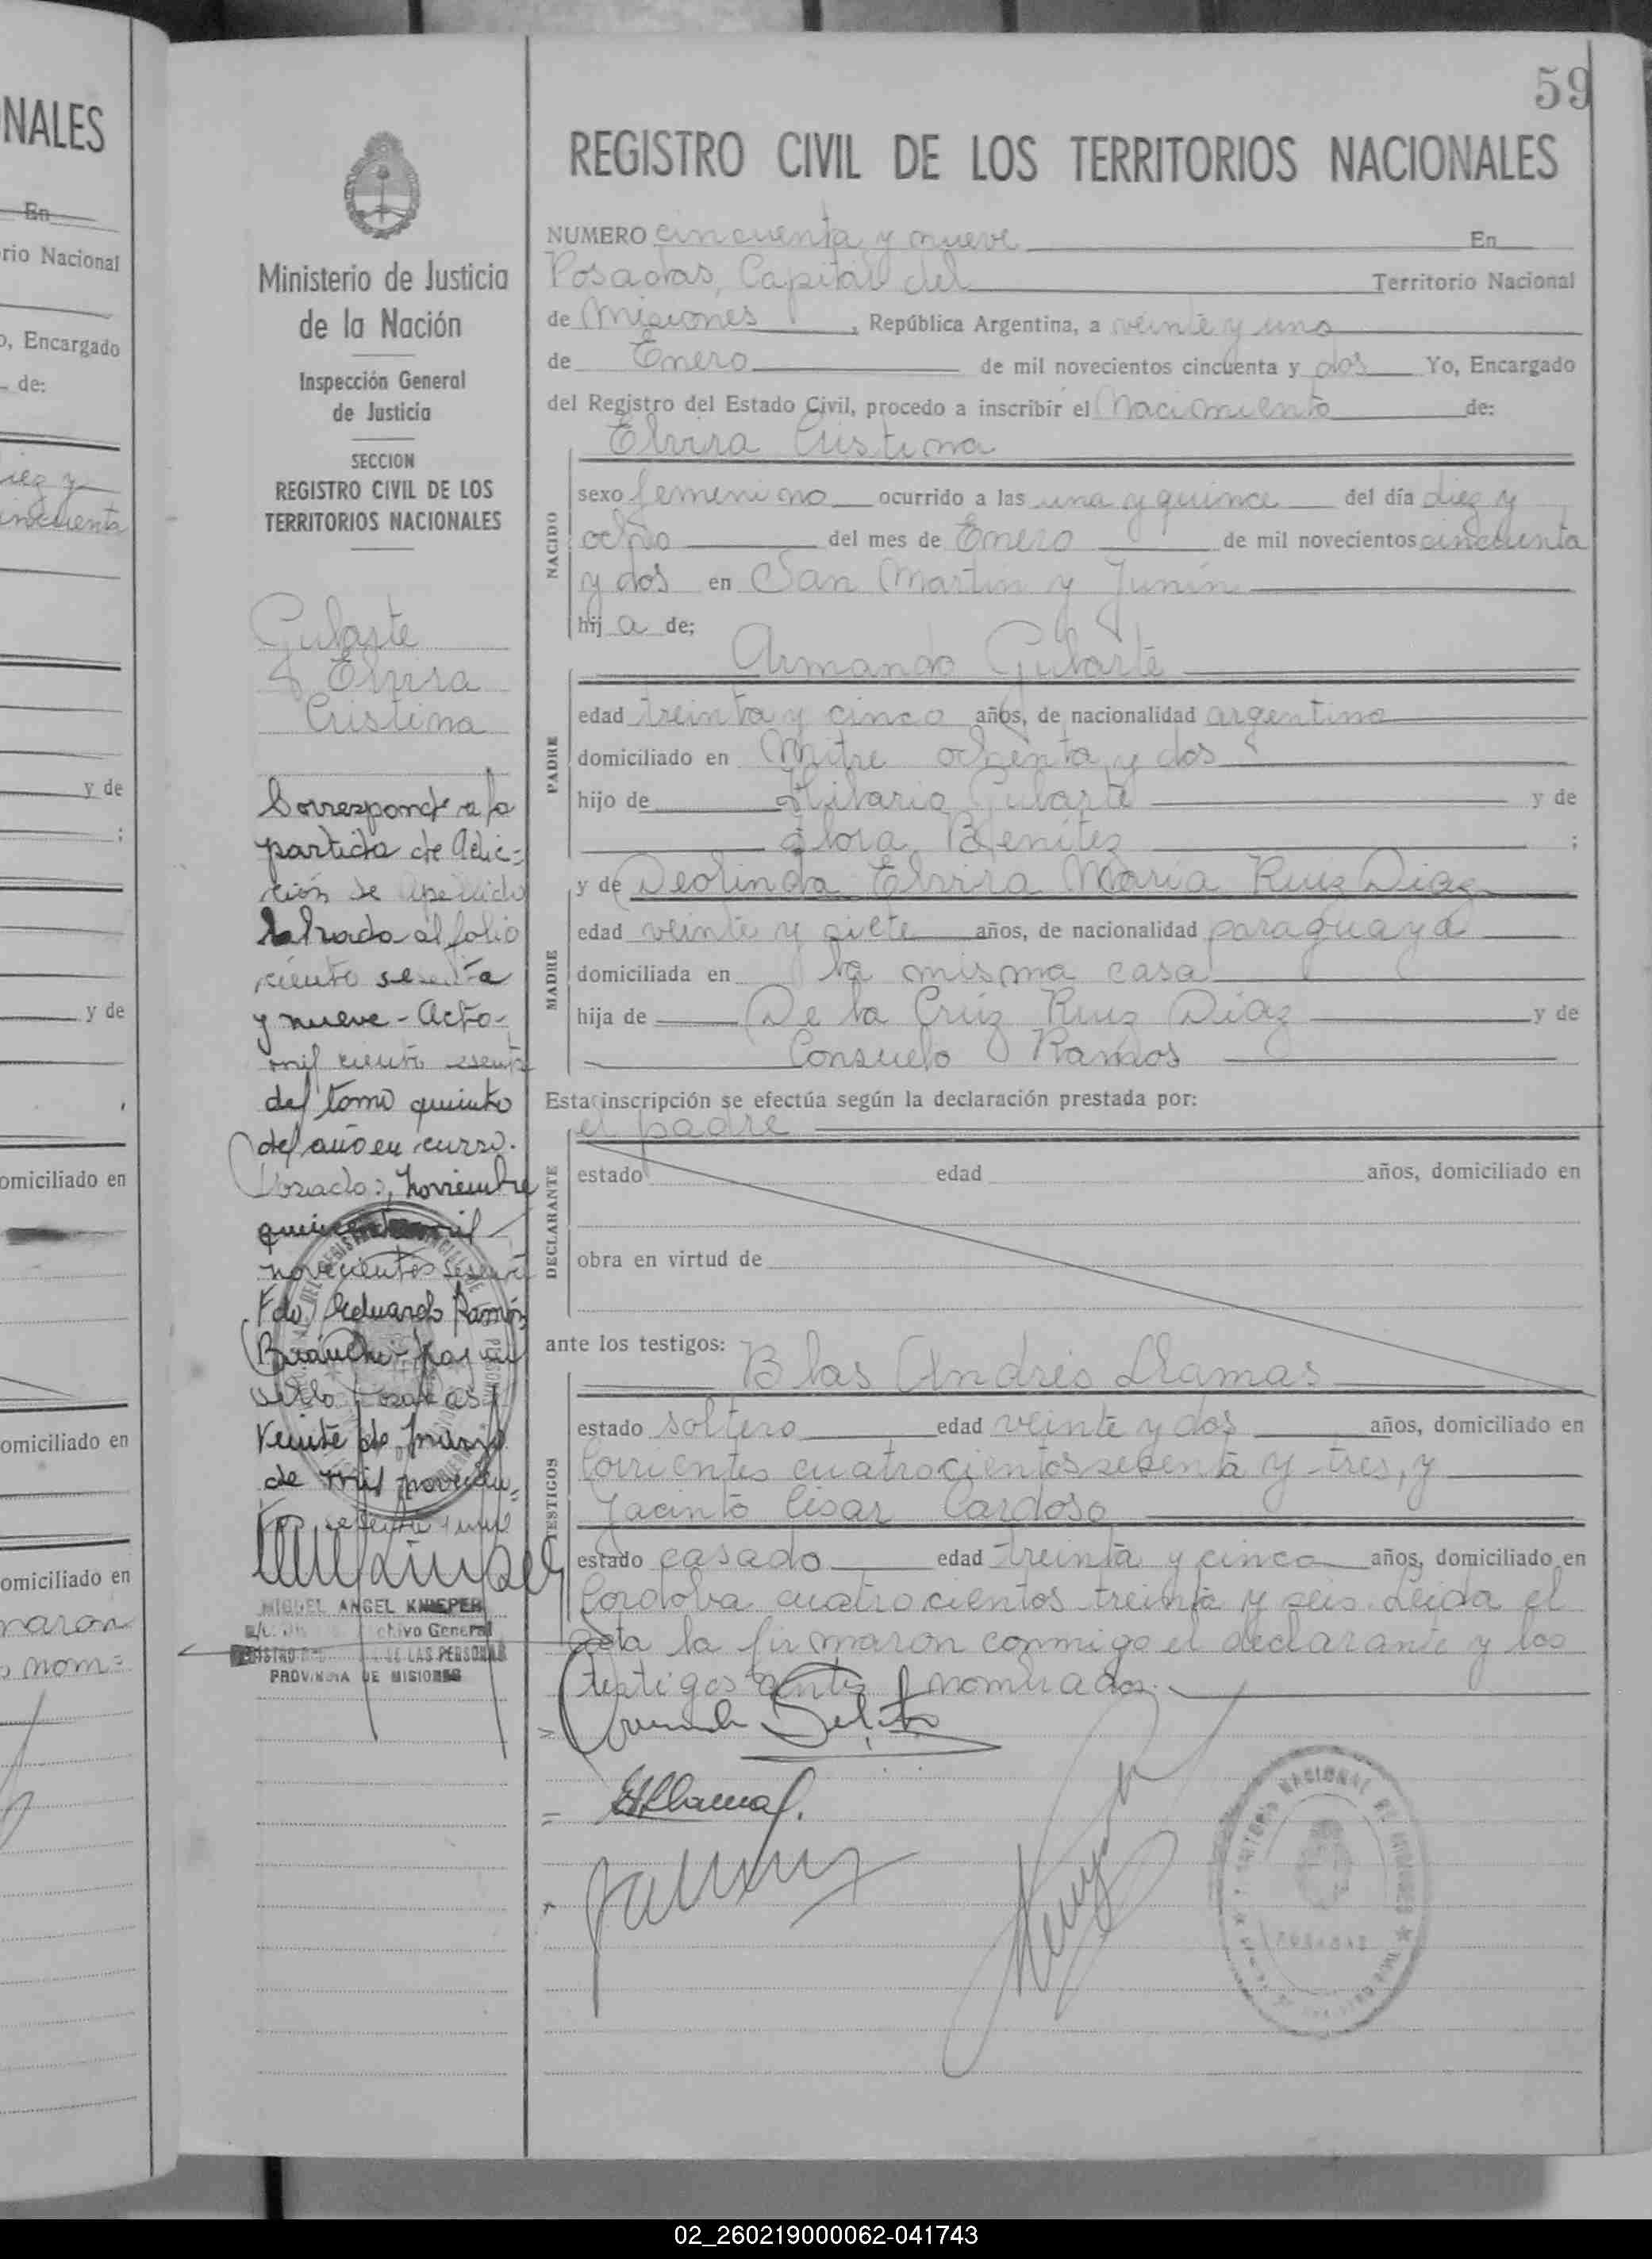 NALES
En
rio Nacional
o, Encargado
de:
iez y
incuenta
y de
;
y de
omiciliado en
omiciliado en
omiciliado en
maron
nom=
59
REGISTRO CIVIL DE LOS TERRITORIOS NACIONALES
Ministerio de Justicia
de la Nación
Inspección General
de Justicia
SECCION
REGISTRO CIVIL DE LOS
TERRITORIOS NACIONALES
Gularte
Elvira
Cristina
Corresponde a la
partida de Adic=
ción de Apellido
labrada al folio
ciento sesenta
y nueve - Acta -
mil ciento
del tomo quinto
del año en curso.
Posadas, Noviembre
quince de mil
novecientos
Fdo. Eduardo Ramón
Posadas
Veinte de Marzo
de mil novecien=
tos setenta y uno
MIGUEL ANGEL KNIEPER
chivo General
DE LAS PERSONAS
PROVINCIA DE MISIONES
NUMERO cincuenta y nueve En
Posadas, Capital del Territorio Nacional
de Misiones, República Argentina, a veinte y uno
de Enero de mil novecientos cincuenta y dos Yo, Encargado
del Registro del Estado Civil, procedo a inscribir el Nacimiento de:
Elvira Cristina
NACIDO
sexo femenino ocurrido a las una y quince del día diez y
ocho del mes de Enero de mil novecientos cincuenta
y dos en San Martin y Junín
hij a de;
Armando Gularte
PADRE
edad treinta y cinco años, de nacionalidad argentino
domiciliado en Mitre ochenta y dos
hijo de Hilario Gularte y de
Flora Benítez ;
y de Deolinda Elvira Maria Ruiz Diaz
MADRE
edad veinte y siete años, de nacionalidad paraguaya
domiciliada en la misma casa
hija de De la Cruz Ruiz Diaz y de
Consuelo Ramos
Esta inscripción se efectúa según la declaración prestada por:
el padre
DECLARANTE
estado edad años, domiciliado en
obra en virtud de
ante los testigos: Blas Andrés Llamas
TESTIGOS
estado soltero edad veinte y dos años, domiciliado en
Corrientes cuatrocientos sesenta y tres, y
Jacinto César Cardoso
estado casado edad treinta y cinco años, domiciliado en
Cordoba cuatrocientos treinta y seis. Leída el
acta la firmaron conmigo el declarante y los
testigos antes nombrados.
POSADAS
02_260219000062-041743